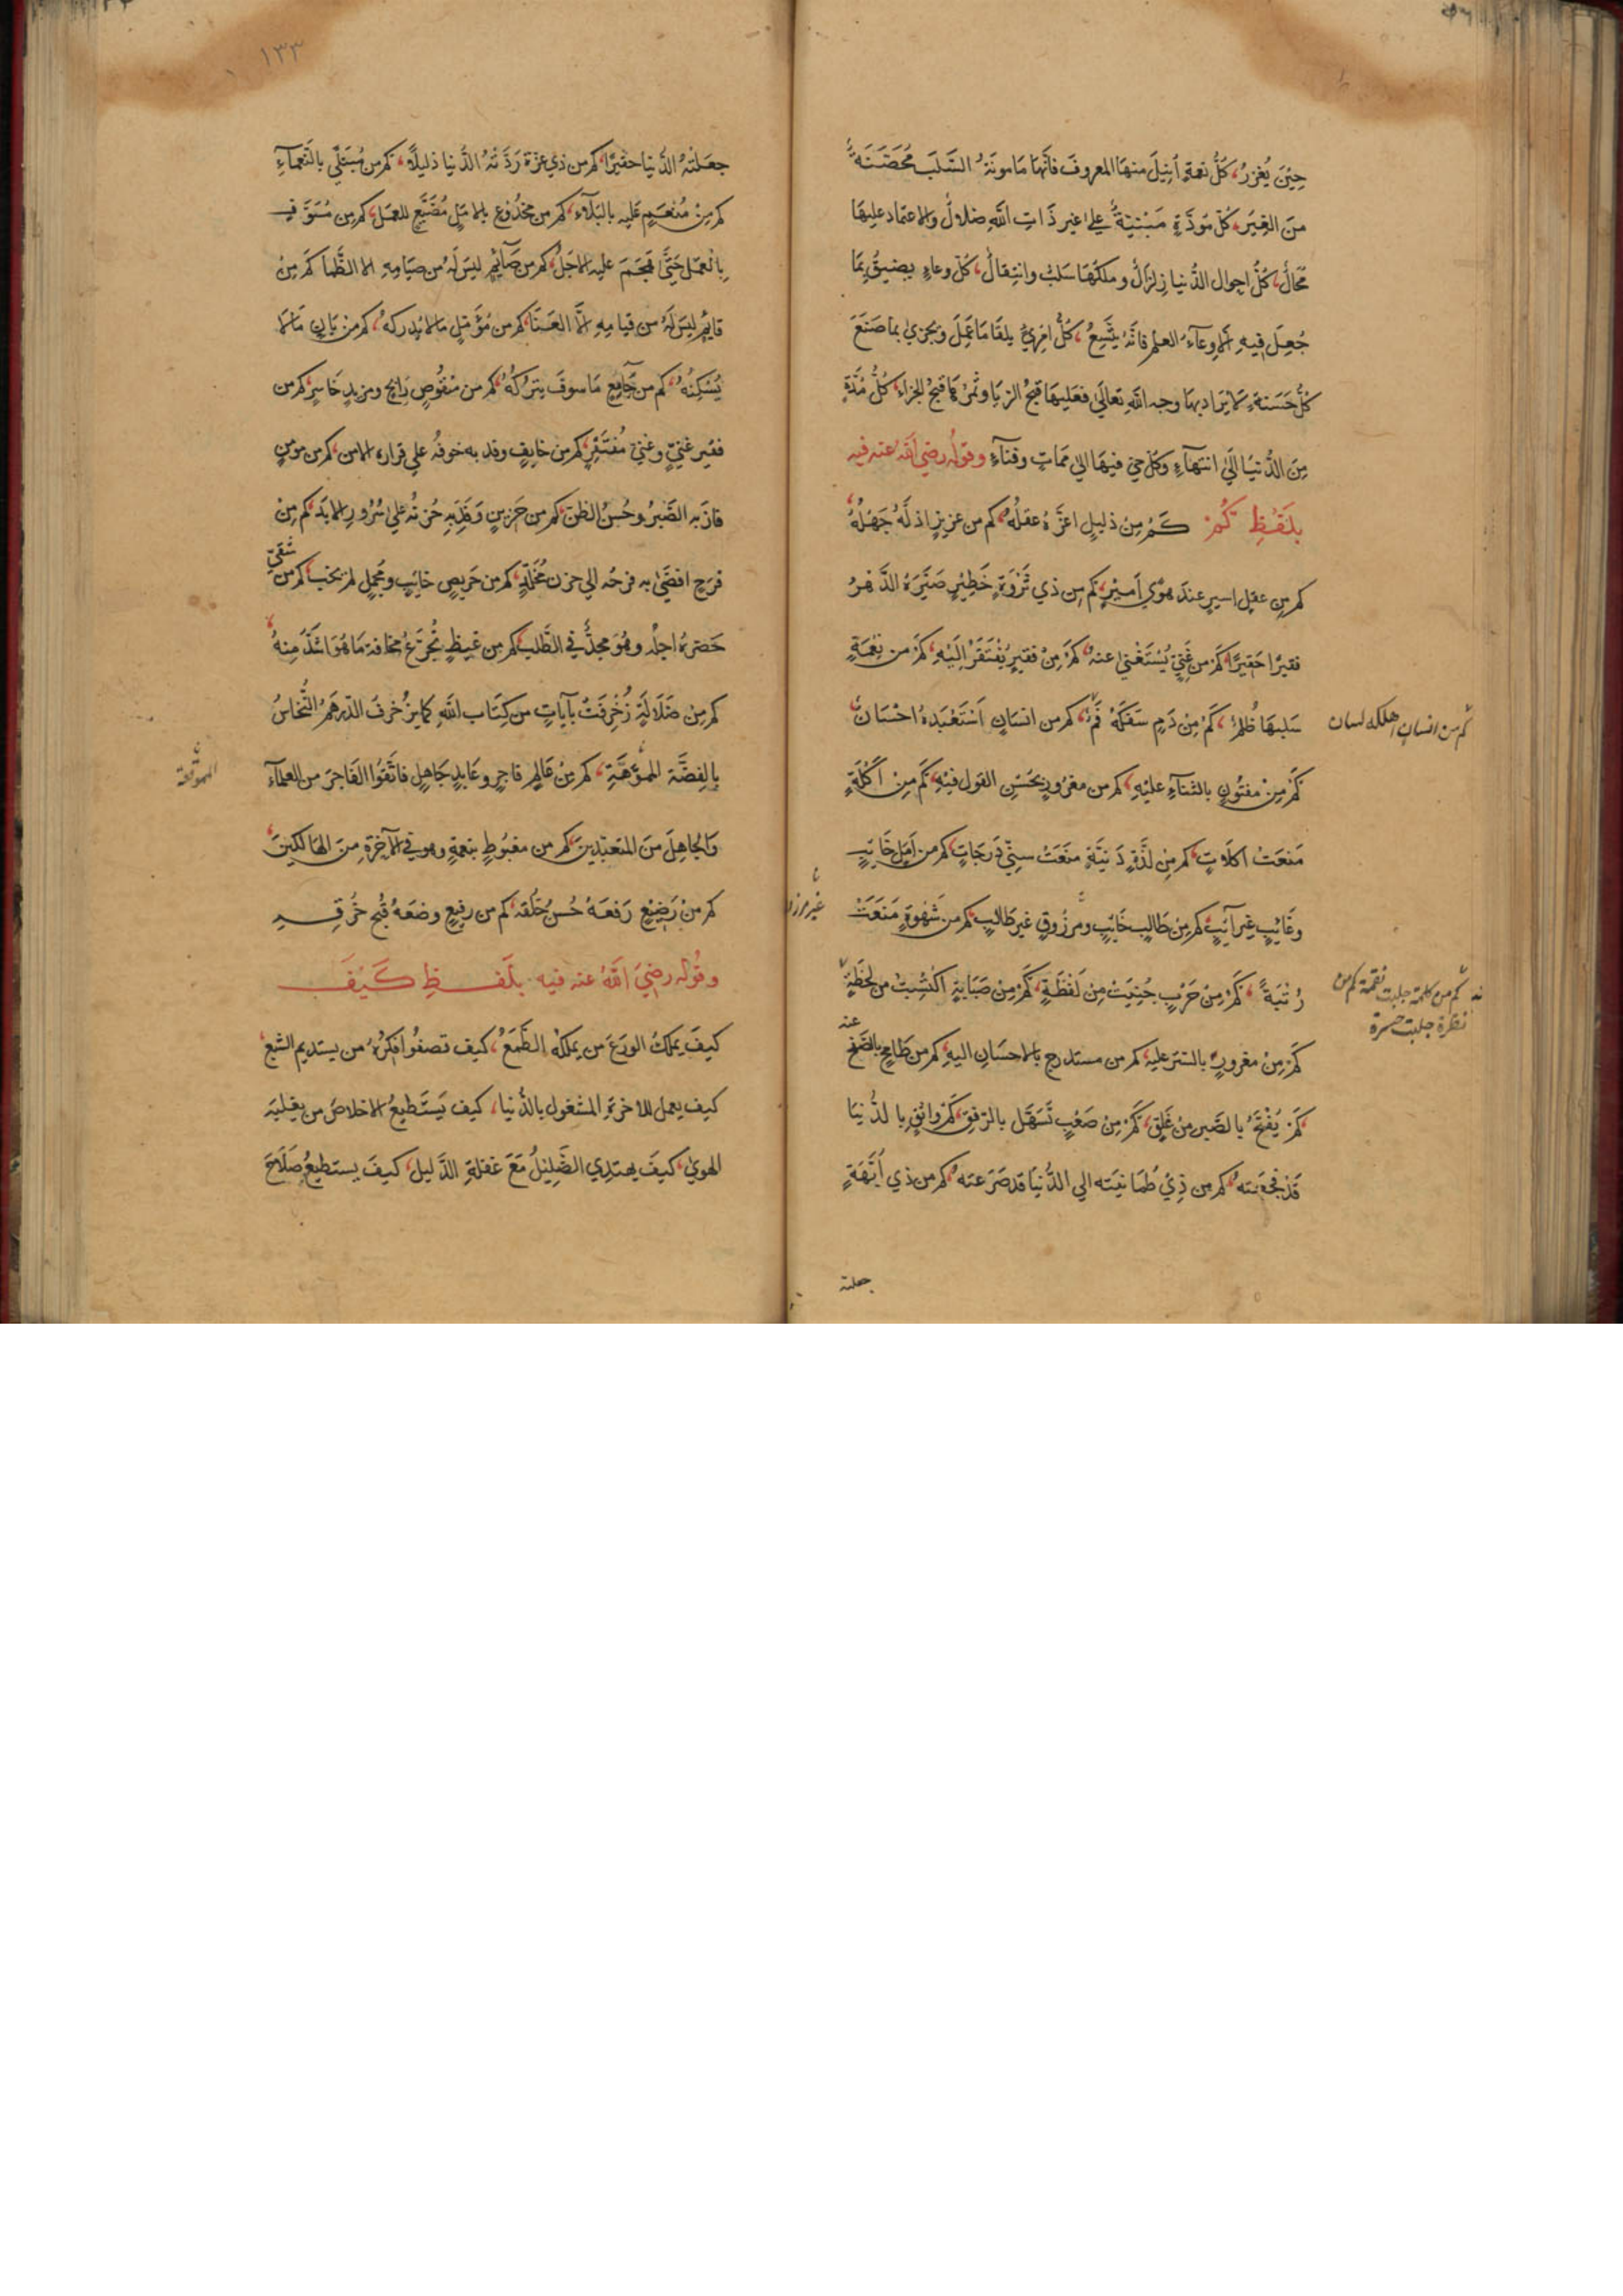 حِيْنَ يُغزرُ، كُلُّ نعمةٍ اُنِيلَ منهَا المعروفَ فانّهَا مَامونَةُ السَّلَبِ مُحَصَّنَةٌ
مِنَ الغِيَرِ، كُلّ مَودَّةٍ مَبْنيَةٌ علي غير ذَاتِ اللّٰهِ ضلالٌ والاعتماد عليهَا
مُحَالٌ، كُلُّ احوال الدُّنيا زِلزَالٌ وملكهَا سَلبٌ وانتِقالٌ، كلّ وعاءٍ يضيقُ بِمَا
جُعِلَ فيهِ الاوِعآءَ العلم فانّهُ يتَّسِعُ، كُلُّ امْرِئٍ يلقَا مَا عَمِلَ ويجزيٰ بما صَنَعَ
كُلُّ حَسَنةٍ لا يُرَاد بهَا وجه اللّٰه تعاليٰ فعَليهَا قبحُ الريَا وثمرُهَا قبحُ الجزاء، كلُّ مُدّةٍ
مِنَ الدُّنيَا اِلَيٰ انتهآءٍ وكلّ حيّ فيهَا الي ممَاتٍ وفنآءٍ وقولُه رضي اللّٰه عنه فيه
بلَفْظِ كَمْ كَمْ مِنْ ذليلٍ اعزَّهُ عقلُهُ، كم من عزيزٍ اذلَّهُ جَهْلُهُ،
كم مِن عقلٍ اسيرٍ عندَ هوًي اَميْرٍ، كَم مِن ذي ثَرْوَةٍ خَطِيْرٍ صَيَّرَهُ الدَّهرُ
فقيرًا حَقيرًا، كَم من غَنِيّ يُسْتَغْنيٰ عنهُ، كَمْ مِنْ فقيرٍ يُفْتَقَرُ اِلَيْهِ، كمْ من نِعْمَةٍ
سَلبهَا ظُلْمٌ، كَمْ مِنْ دَمٍ سَفَكَهُ فَمٌ، كم من انسَانٍ اسْتَعْبَدهُ احْسَانٌ،
كم من انسانٍ اهلكه لسان
كَمْ مِنْ مفتُونٍ بالثنآءِ عليْهِ، كم من مغرُورٍ بحُسْنِ القول فيْهِ، كَم مِنْ اَكْلَةٍ
مَنعَتْ اكلَاتٍ، كم مِنْ لذَّةٍ دَنيَّةٍ منعَتْ سنيّ دَرَجَاتٍ، كم من اَمَلٍ خَائِبٍ
وغَائبٍ غير آئِبٍ، كم مِنْ طَالبٍ خَائبٍ ومرزُوقٍ غير طَالبٍ، كم من شَهْوَةٍ مَنَعَتْ
رُتبَةً، كَمْ مِنْ حَرْبٍ جُنِيَتْ مِنْ لَفْظَةٍ، كَمْ مِنْ صَبَابَةٍ اكتُسِبَتْ من لحْظَةٍ
كم من كلمة جلبت نقمة كم من
نظرة جلبت حسرة
كَمْ مِنْ مغرورٍ بالستر عليه، كم من مستدرج بالاحسَانِ اليهِ، كم من طَامحٍ بالصَّفح عنه
كَمْ يُفْتَحُ بالصَّبر مِنْ غَلِقٍ، كَمْ مِنْ صَعْبٍ تَسَهَّل بالرّفقِ، كَمْ وَاثقٍ بالدُّنيَا
قَدْ فَجَعَتهُ، كم من ذِيْ طُمَانيَنة الي الدُّنيَا قد صَرَعته، كم من ذي اُبَّهَةٍ
جعلته
١٣٣
جعَلتْهُ الدُّنيا حقيْرًا، كم من ذي عزّة رَدَّتهُ الدُّنيا ذليلًا، كم من مُبْتَليً بالنَّعمآءِ
كم مِنْ مُنعَمٍ عَليه بالبَلآءِ، كم من مخدُوعٍ بالامَلِ مُضَيَّعٍ للعمَلِ، كم من مُسَوّفٍ
بالعمَلِ حَتّيٰ هَجَمَ عليه الاجَلُ، كم من صَآئِمٍ ليسَ لَهُ من صيَامِهِ الا الظَّما كَم مِنْ
قايمٍ ليسَ لَهُ من قيامِهِ الَّا العَنَا، كم من مُؤمّلٍ مالا يُدركهُ، كم من بَانٍ مَالا
يُسْكِنُهُ، كم من جَامِعٍ مَا سوفَ يترُكهُ، كم من مَنْقُوصٍ رَابحٍ ومزيدٍ خَاسرٍ، كم من
فقير غنيّ وغنيّ مُفتَقِرٍ، كم من خايفٍ وفد به خوفُه علي قرارة الامن، كم من مومنٍ
فازَ به الصَّبرُ وحُسنُ الظنّ، كم من حَزينٍ وَفَدَ بِهِ حُزنُه علي سُرُورِ الابَد، كم مِنْ
فرَحٍ افضَيٰ به فرحُه الي حزن مُخَلَّدٍ، كم من حَريصٍ خايبٍ ومُجْمِلٍ لم يخب، كم من شَقيّ
حَضرهُ اجلُه وهُوَ مجدٌّ في الطَّلب، كم من غيظٍ تُجُرّعُ مخافة مَا هُوَ اشَدُّ مِنهُ
كم مِنْ ضَلَالَةٍ زُخْرِفَتْ بآيَاتٍ من كِتَابِ اللّٰهِ كما يزُخرفُ الدّرهَمُ النُّحَاسُ
بالفِضَّة المموَّهَةِ، كم مِنْ عَالمٍ فاجرٍ وعَابدٍ جَاهِلٍ فاتّقوُا الفَاجرَ من العلمآءِ
المموّهة
وَالجَاهِلَ منَ المتعبّدِينَ، كم من مغبُوطٍ بنعمةٍ وهو في الآخِرَةِ مِنَ الهَالكِينَ،
كم مِنْ وَضِيْعٍ رَفعَهُ حُسْنُ خُلقه، كم من رفيعٍ وضعَهُ قُبْحُ خُرقِهِ
وقُوله رضيَ اللّٰهُ عنه فيه بلَفظِ كَيْفَ
كيفَ يملكُ الورَعَ من يملكُه الطَّمَعُ، كيفَ تصفُوا فِكرُهُ من يستديم الشبع،
كيف يعمل للاخرةِ المشغول بالدُّنيا، كيف يَستَطيعُ الاخلاصَ من يغلبهُ
الهويٰ، كيفَ يهتدِي الضّلِيلُ مَعَ غفلةِ الدَّليل، كيفَ يستطيعُ صَلَاحَ